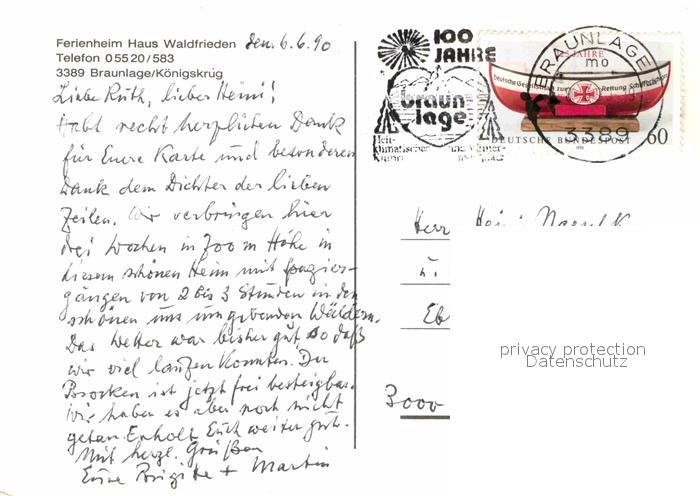 Ferienheim Haus Waldfrieden den 6.6.90
Telefon 05520/583
3389 Braunlage/Königskrug
Liebe Ruth, lieber Heini!
Habt recht herzlichen Dank
für Eure Karte und besonderen
Dank dem Dichter der lieben
Zeilen. Wir verbringen hier
drei Wochen in 700 m Höhe in
diesem schönen Heim mit Spazier-
gängen von 2 bis 3 Stunden in den
schönen uns umgebenden Wäldern.
Das Wetter war bisher gut, so daß
wir viel laufen konnten. Der
Brocken ist jetzt frei besteigbar.
Wir haben es aber noch nicht
getan. Erholt Euch weiter gut.
Mit herzl. Grüßen
Eure Brigitte + Martin
100
JAHRE
braun
lage
Heil-
klimatischer und Winter-
BRAUNLAGE
mo
3389
125 JAHRE
Deutsche Gesellschaft zur Rettung Schiffbrüchiger
DEUTSCHE BUNDESPOST 60
1990
Herr Heini
u.
Eb
3000
privacy protection
Datenschutz